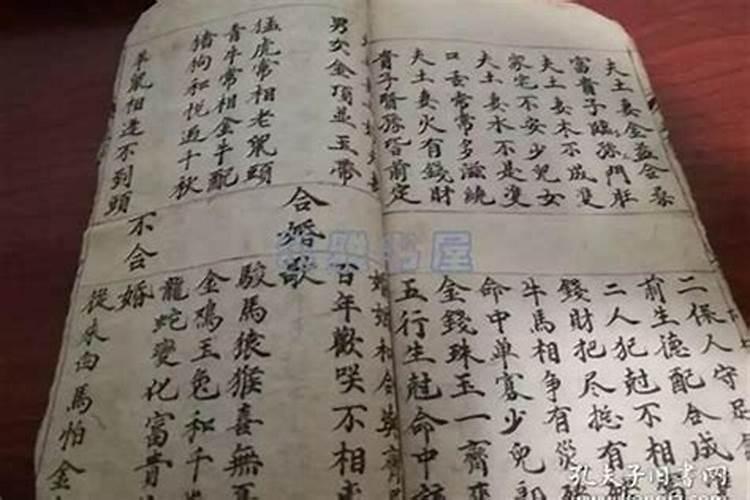 夫土妻金益合
富貴子臨孫門庄
夫土妻木不成雙
家宅不安少兒女
夫土妻水不是雙
口舌常常多滋繞
夫土妻火有錢財
貴子賢孫皆前定
二保人守足
前生德配合成
二人犯尅不相
錢財把尽挺有
牛馬相爭有災
命中单寡少兒郎
金錢珠玉一齊來
五行生尅命中
婚姻和合
男女金項並玉帶
猛虎常相老鼠頭
青牛常相金牛配
豬狗和悅過千秋
羊鼠相逢不到頭
合婚歌
不合婚
百年歡咲不相
駿馬猿猴喜無
金鳮玉兔和千
龍蛇變化富貴
從來白馬怕金
孔夫子旧書网